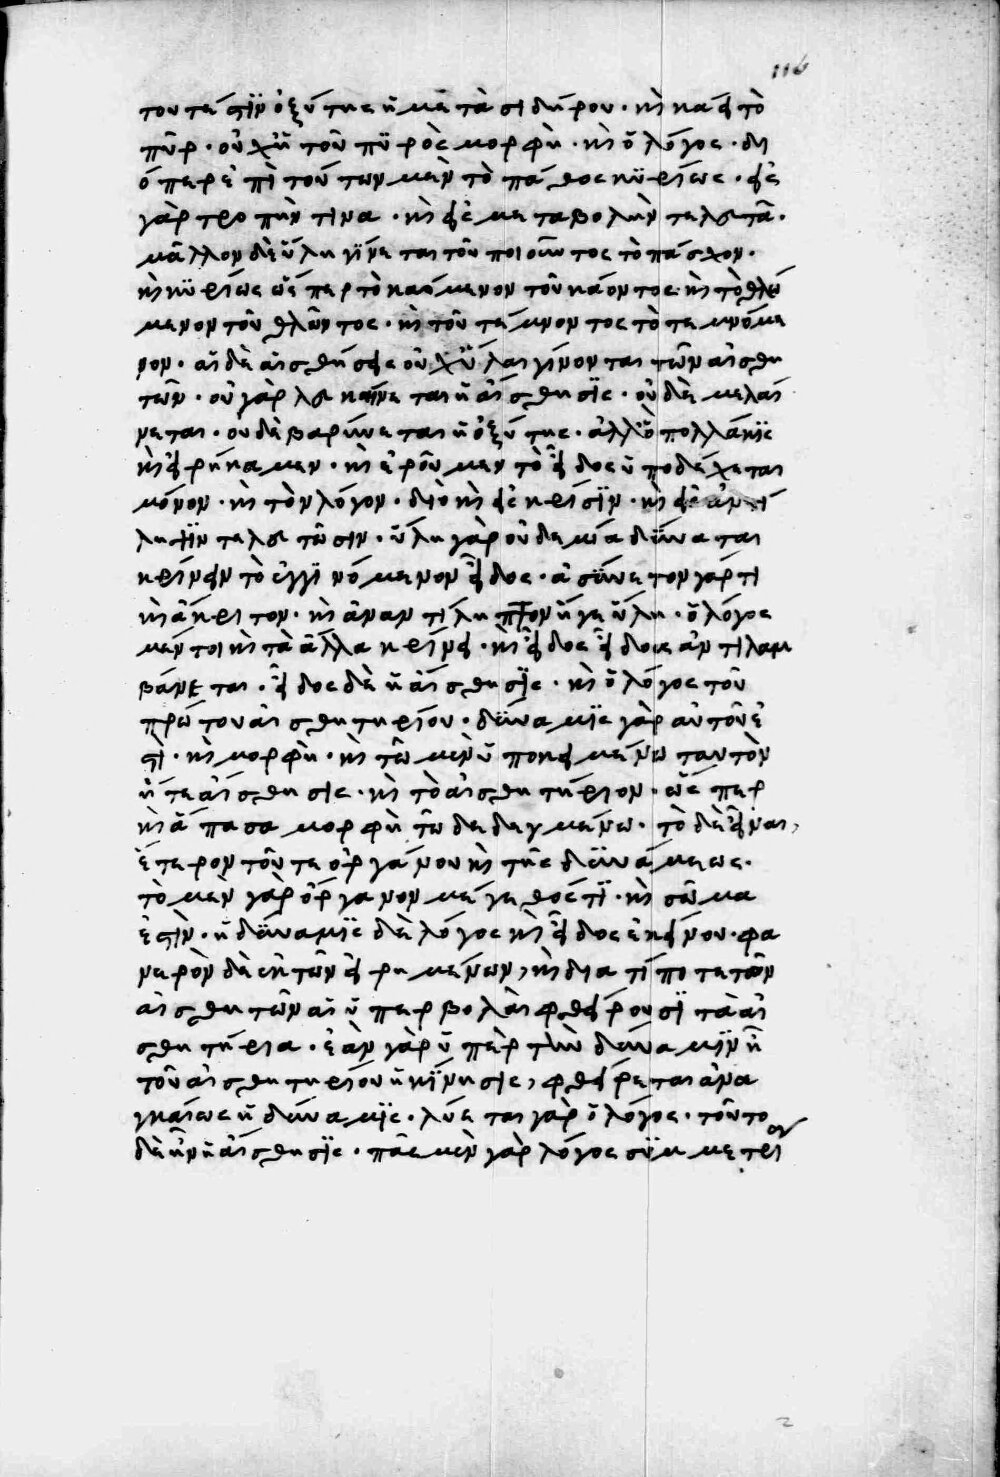 116
τουτέστιν ὀξύτης ἡ μετὰ σιδήρου · καὶ καίει τὸ
πῦρ · οὐχ ἡ τοῦ πυρὸς μορφὴ · καὶ ὁ λόγος · δι
όπερ ἐπὶ τούτων μὲν τὸ πάθος κυρίως · εἰς
γὰρ τροπήν τινα · καὶ εἰς μεταβολὴν τελευτᾶ ·
μᾶλλον δὲ ὕλη γίνεται τοῦ ποιοῦντος τὸ πάσχον ·
καὶ κυρίως ὥσπερ τὸ καόμενον τοῦ κάοντος · καὶ τὸ θλώ
μενον τοῦ θλῶντος · καὶ τοῦ τέμνοντος τὸ τεμνόμε
νον · αἱ δὲ αἰσθήσεις οὐχ ὗλαι γίνονται τῶν αἰσθη
τῶν · οὐ γὰρ λευκαίνεται ἡ αἴσθησις · οὐδὲ μελαί
νεται · οὐδὲ βαρύνεται ἡ ὀξύτης · ἀλλ' ὃ πολλάκις
καὶ εἰρήκαμεν · καὶ ἐροῦμεν τὸ εἶδος ὑποδέχεται
μόνον · καὶ τὸν λόγον · διὸ καὶ εἰς κρίσιν · καὶ εἰς ἀντί
ληψιν τελευτῶσιν · ὕλη γὰρ οὐδεμία δύναται
κρίνειν τὸ ἐγγινόμενον εἶδος · ἀσύνετον γάρ τι
καὶ ἄκριτον · καὶ ἀναντίληπτον ἥγε ὕλη · ὁ λόγος
μέντοι καὶ τὰ ἄλλα κρίνει · καὶ εἶδος εἴδους ἀντιλαμ
βάνεται · εἶδος δὲ ἡ αἴσθησις · καὶ ὁ λόγος τοῦ
πρώτου αἰσθητηρίου · δύναμις γὰρ αὐτοῦ ἐ
στὶ · καὶ μορφὴ · καὶ τῶ μὲν ὑποκειμένω ταυτὸν
ἥ τε αἴσθησις · καὶ τὸ αἰσθητήριον · ὥσπερ
καὶ ἅπασα μορφὴ τῶ δεδεγμένω · τὸ δὲ εἶναι,
ἕτερον τοῦ τε ὀργάνου καὶ τῆς δυνάμεως ·
τὸ μὲν γὰρ ὄργανον μέγεθος τὶ · καὶ σῶμα
ἐστὶν · ἡ δύναμις δὲ λόγος καὶ εἶδος ἐκείνου · φα
νερὸν δὲ ἐκ τῶν εἰρημένων, καὶ δια τί ποτε τῶν
αἰσθητῶν αἱ ὑπερβολαὶ φθείρουσι τὰ αἰ
σθητήρια · ἐὰν γὰρ ὑπὲρ τὴν δύναμιν ᾖ
τοῦ αἰσθητηρίου ἡ κίνησις, φθείρεται ἀνα
γκαίως ἡ δύναμις · λύεται γὰρ ὁ λόγος · τοῦτο
δὲ ἦν ἡ αἴσθησις · πᾶς μὲν γὰρ λόγος συμμετρι